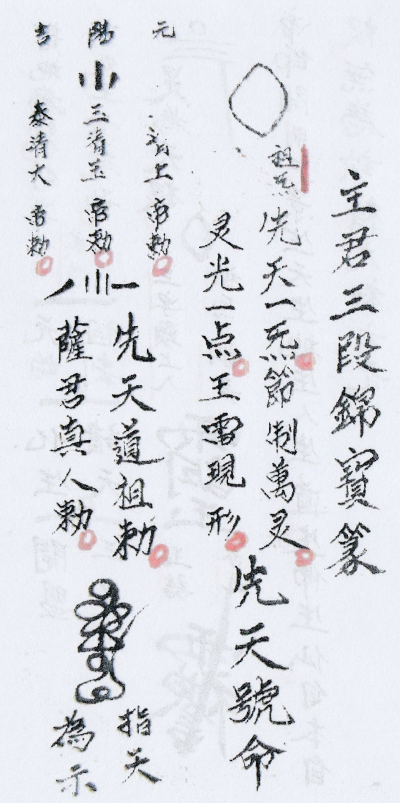 主君三段錦寶篆
祖炁
先天一炁節制萬灵
灵光一点王雷現形
先天號命
元
清上帝勅
陽
三清玉帝勅
吉
泰清大帝勅
先天道祖勅
薩君真人勅
指天
為示